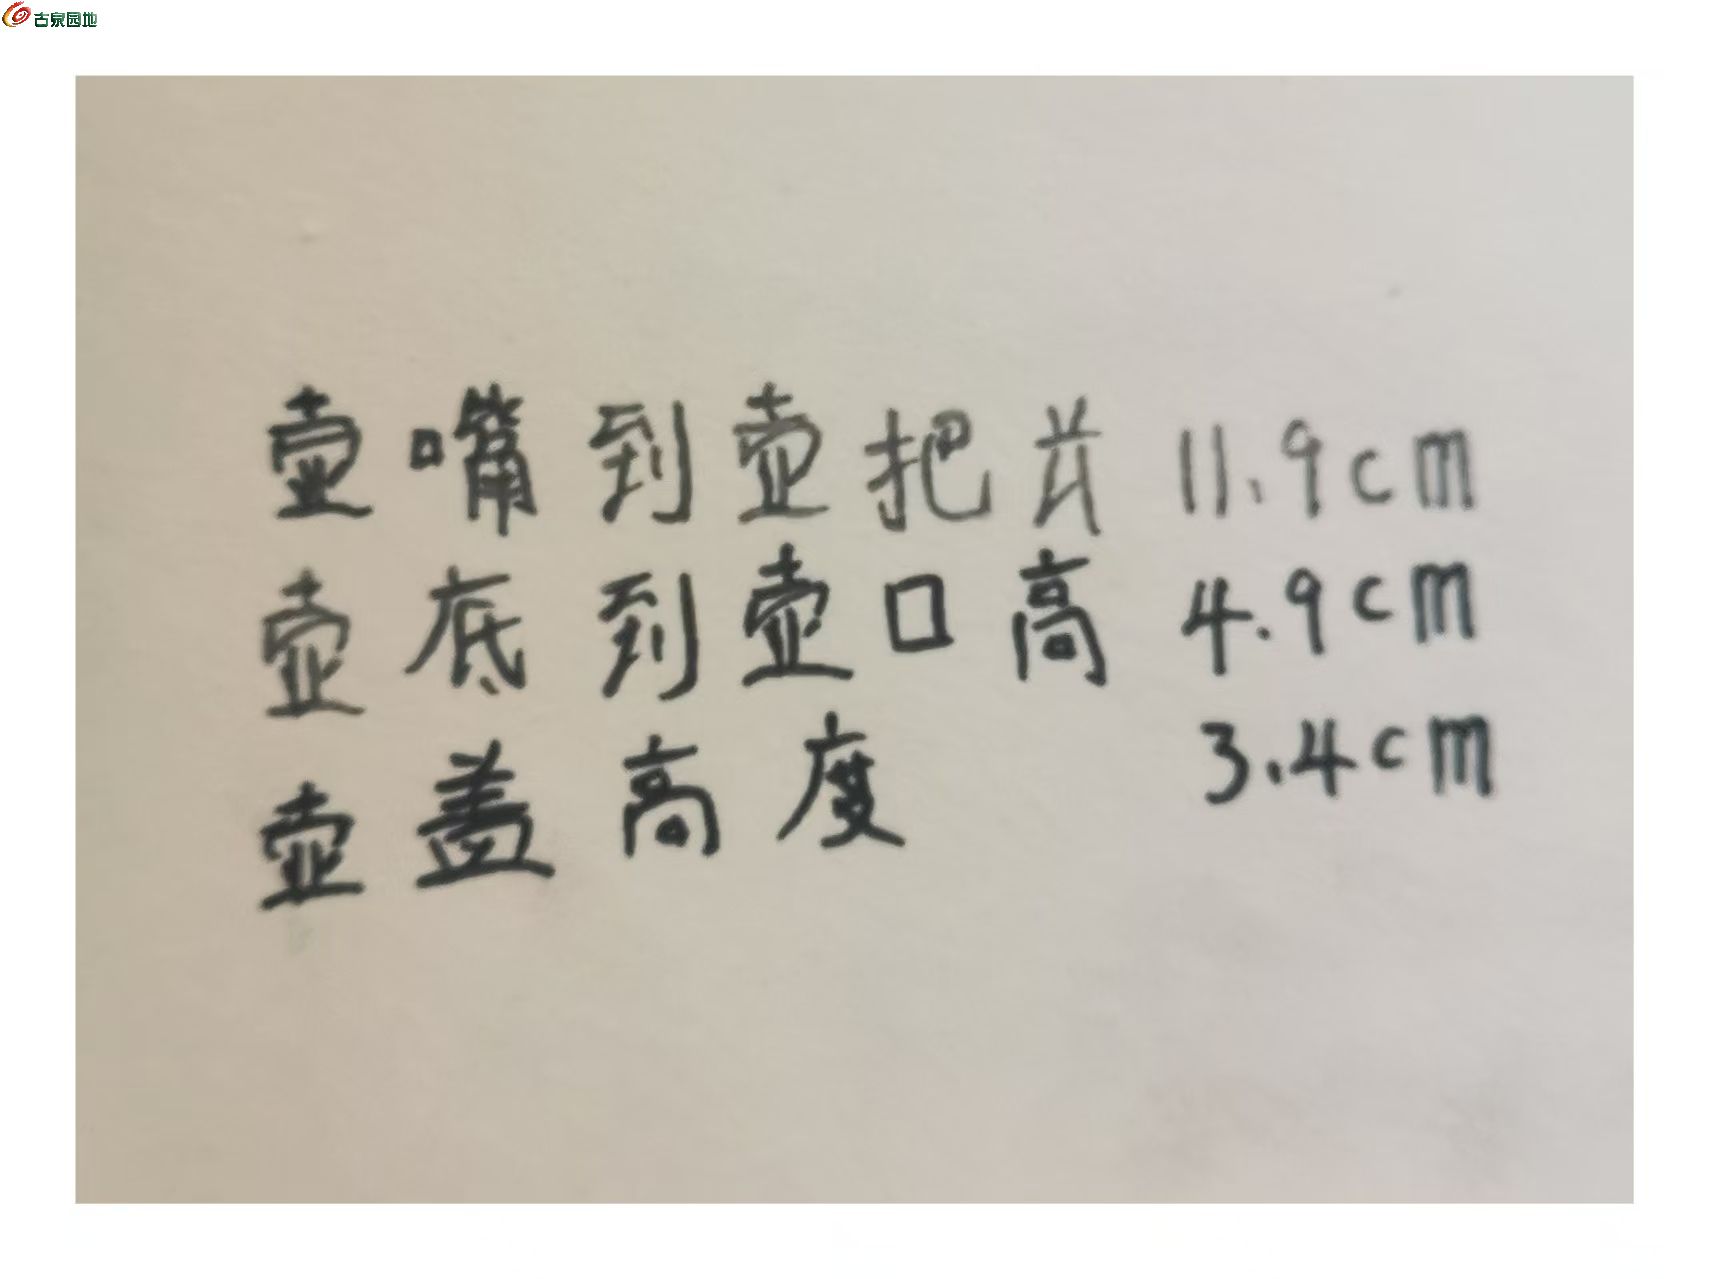 古泉园地
壶嘴到壶把 11.9cm
壶底到壶口高 4.9cm
壶盖高度 3.4cm